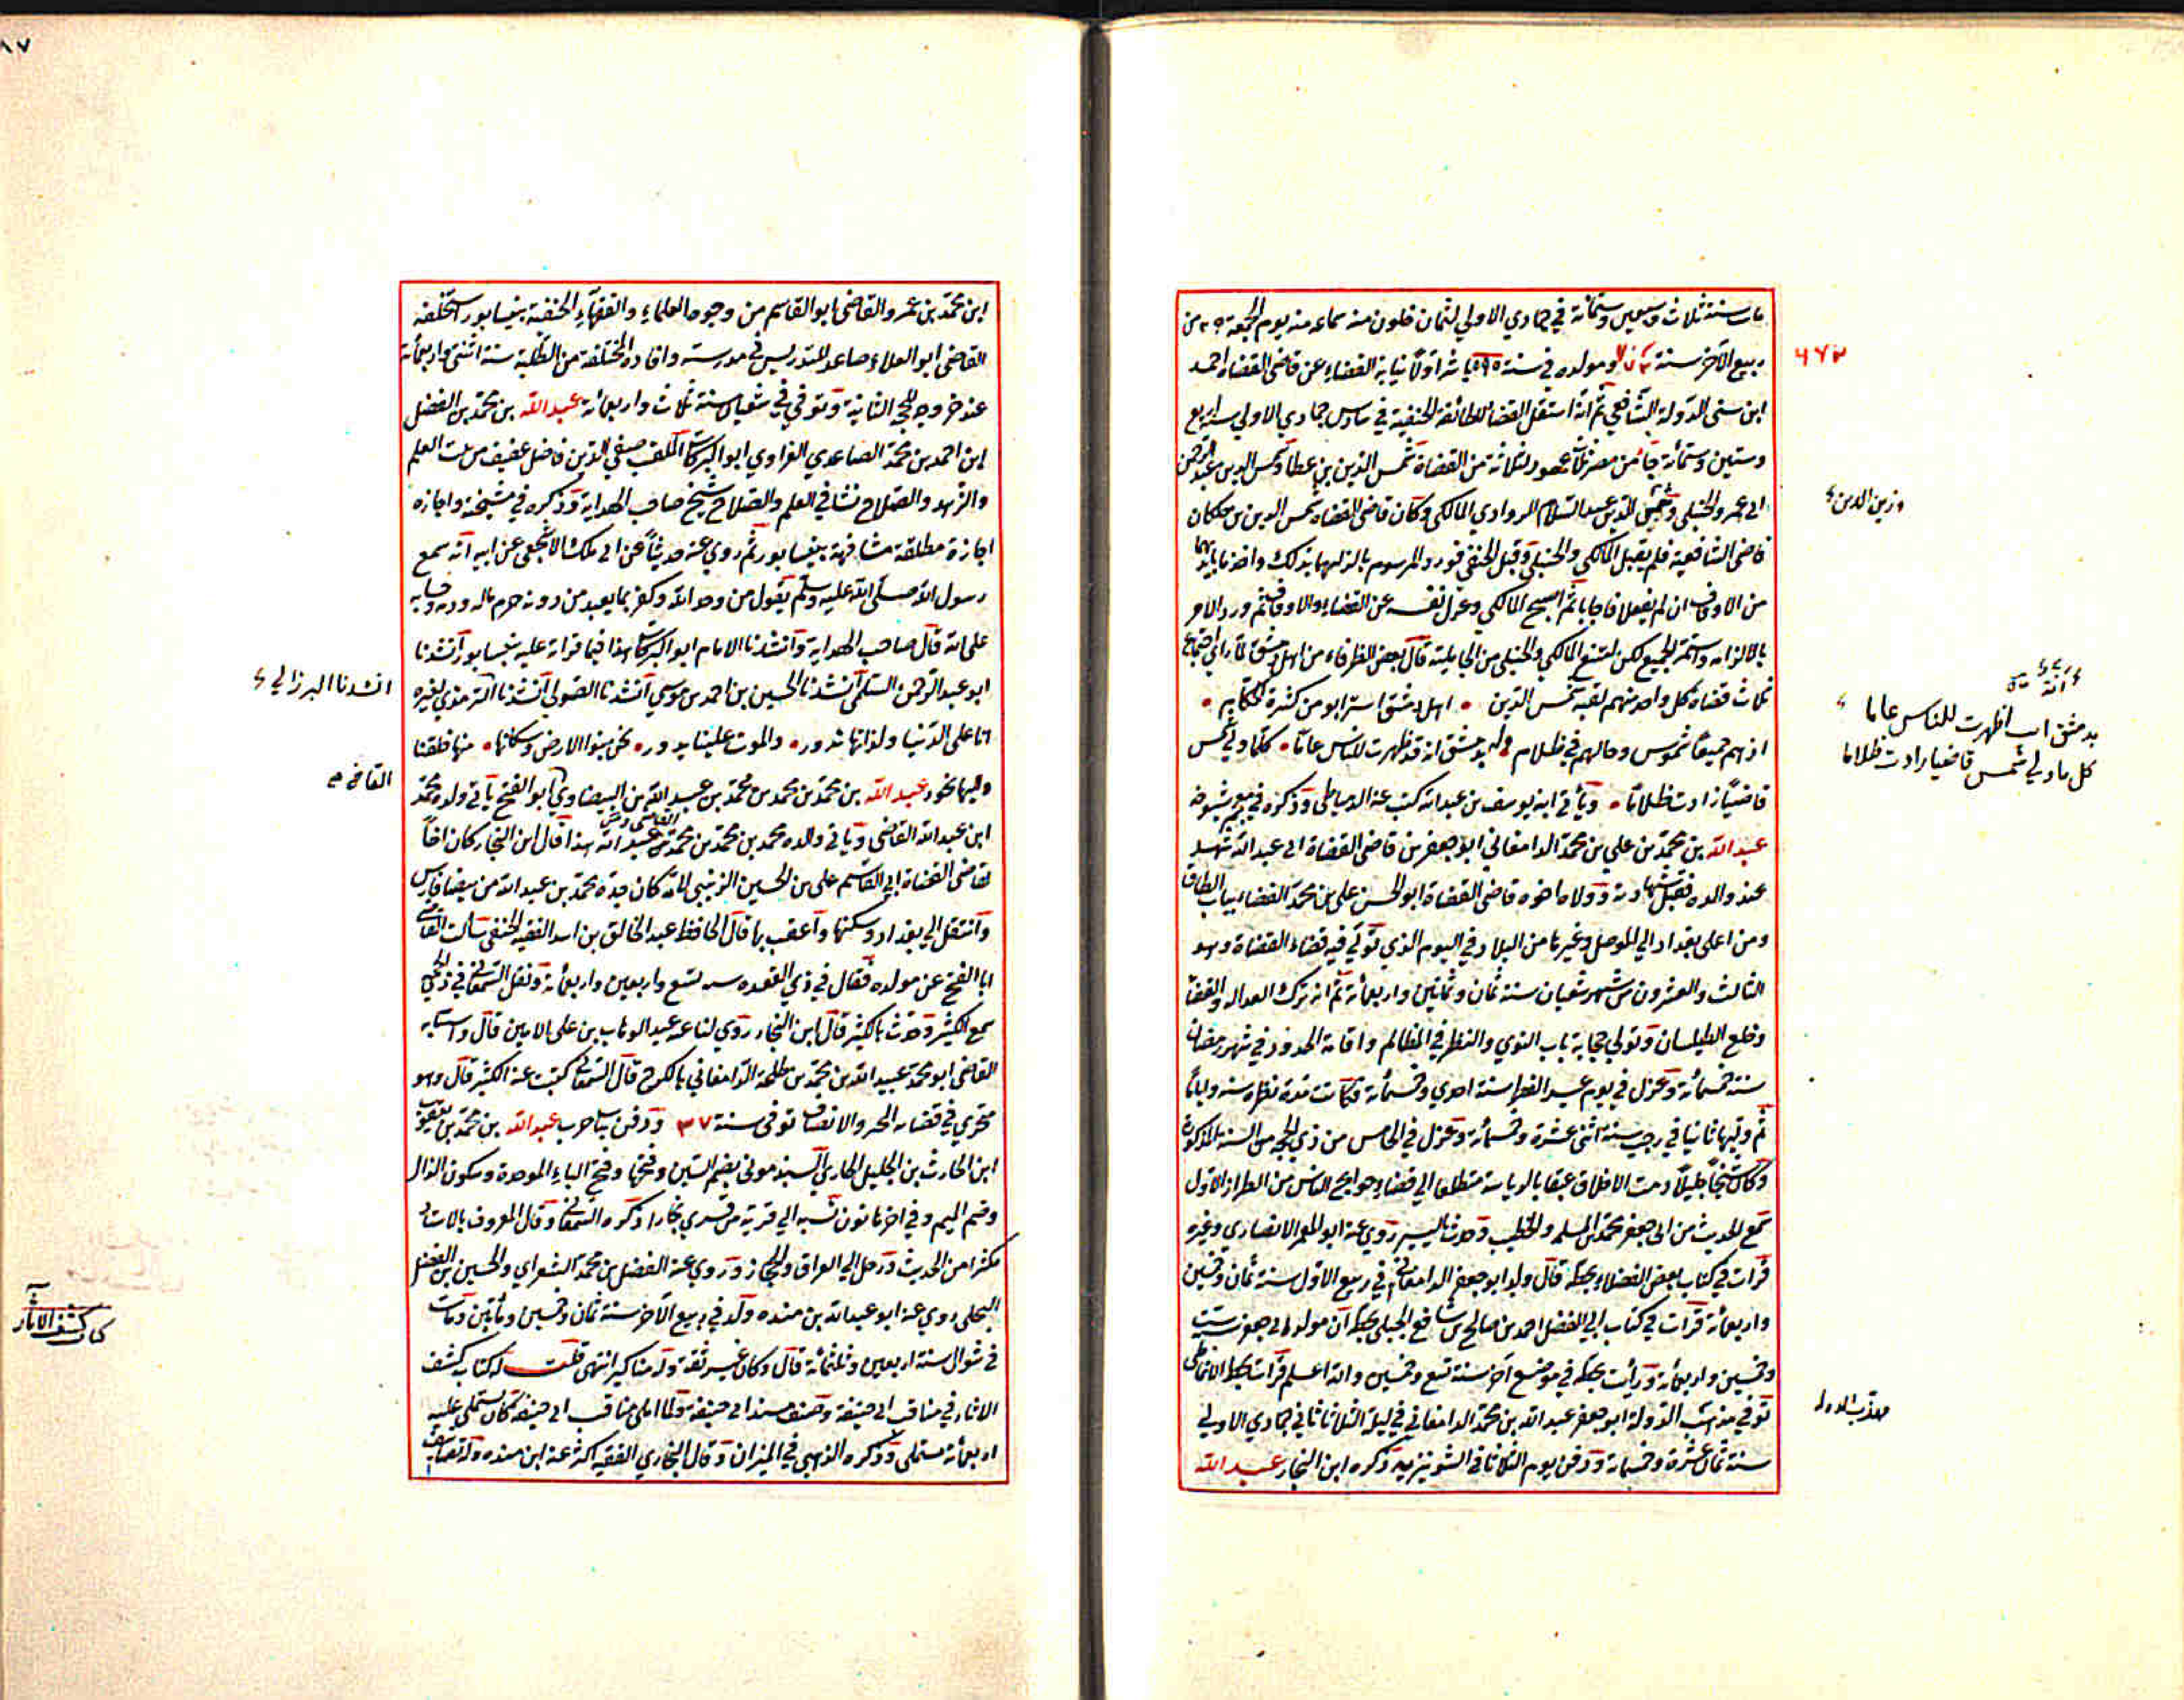 مات سنة ثلاث وسبعين وستمائة في جمادي الاولي لثمان خلون منه سماعه منه يوم الجمعة من
ربيع الآخر سنة ومولده في سنة ٥٩٥ باشر اولا نيابة القضاء عن قاضي القضاة احمد
ابن سنى الدولة الشافعي ثم انه استقل القضا للطائفة الحنفية في سادس جمادي الاولي سنة اربع
وستين وستمائة جأ من مصر ثلاثة عهود لثلاثة من القضاة شمس الدين بن عطا وشمس الدين عبد الرحمن
ابي عمر والحنبلي الدين عبد السلام الزواوي المالكي وكان قاضي القضاة شمس الدين بن خلكان
قاضي الشافعية فلم يقبل المالكي والحنبلي وقبل الحنفي فورد المرسوم بالزامهما بذلك واخذ ما بايديهما
من الاوقاف ان لم يفعلا فاجابا ثم اصبح المالكي وعزل نفسه عن القضاء والاوقاف ثم ورد الامر
بالالزام واستمر الجميع لكن امتنع المالكي والحنبلي من الجامكية قال بعض الظرفاء من اهل دمشق لما راي اجتماع
ثلاث قضاة كل واحد منهم لقبه شمس الدين • اهل دمشق استرابو من كثرة الحكام •
اذ هم جميعا شموس وحالهم في ظلام بدمشق انه قد ظهرت للناس عاما • كلما ولي شمس
قاضيا زادت ظلاما • ويأتي ابنه يوسف بن عبد الله كتب عنه الدمياطي وذكره في معجم شيوخه
عبد الله بن محمد بن علي بن محمد الدامغاني ابو جعفر بن قاضي القضاة ابي عبد الله شهد
عند والده فقبل شهادته وولاه اخوه قاضي القضاة ابو الحسن علي بن محمد القضاء بباب الطاق
ومن اعلي بغداد الي الموصل وغيرها من البلاد في اليوم الذي تولي فيه قضاء القضاة وهو
الثالث والعشرون من شهر شعبان سنة ثمان وثمانين واربعمائة ثم انه ترك العدالة والقضا
وخلع الطيلسان وتولي حجابة باب النوبي والنظر في المظالم واقامة الحدود في شهر رمضان
سنة خمسمائة وعزل في يوم عيد الفطر سنة احدي وخمسمائة فكانت مدة نظره سنة واياما
ثم وليها ثانيا في رجب سنة اثنى عشرة وخمسمائة وعزل في الخامس من ذي الحجة من السنة المذكورة
وكان شيخا جليلا دمث الاخلاق عبقا بالرياسة متطلعا الي قضاء حوايج الناس من الطراز الاول
سمع الحديث من ابي جعفر محمد بن المسلم والخطيب وحدث باليسير روي عنه ابو المعمر الانصاري وغيره
قرات في كتاب بعض الفضلاء بخطه قال ولد ابو جعفر الدامغاني في ربيع الاول سنة ثمان وخمسين
واربعمائة قرات في كتاب ابي الفضل احمد بن صالح بن شافع الجيلي بخطه ان مولد ابي جعفر سنة ست
وخمسين واربعمائة ورأيت بخطه في موضع آخر سنة تسع وخمسين والله اعلم قرات بخط الانماطي
توفي مهذب الدولة ابو جعفر عبد الله بن محمد الدامغاني في ليلة الثلاثا ثاني جمادي الاولي
سنة ثمان عشرة وخمسمائة ودفن يوم الثلاثا في الشونيزية ذكره ابن النجار عبد الله
٦٧٣
وزين الدين
بدمشق اية اظهرت للناس عاما
كل ما ولي شمس قاضيا زادت ظلاما
مهذب الدولة
ابن محمد بن عمرو القاضي ابو القاسم من وجوه العلماء والفقهاء الحنفية بنيسابور استخلفه
القاضي ابو العلاء صاعد للتدريس في مدرسته وافاده المختلفة من الطلبة سنة اثنتى واربعمائة
عند خروجه للحج الثانية وتوفي في شعبان سنة ثلاث واربعمائة عبد الله بن محمد بن الفضل
ابن احمد بن محمد الصاعدي الفراوي ابو البركات الملقب صفي الدين فاضل عفيف من بيت العلم
والزهد والصلاح نشا في العلم والصلاح شيخ صاحب الهداية وذكره في مشيخته واجازه
اجازة مطلقة مشافهة بنيسابور ثم روي عنه حديثا عن ابي ملك الاشجعي عن ابيه انه سمع
رسول الله صلى الله عليه وسلم يقول من وحد الله وكفر بما يعبد من دونه حرم ماله ودمه وحسابه
على الله قال صاحب الهداية وانشدنا الامام ابو البركات هذا فيما قراته عليه بنيسابور انشدنا
ابو عبد الرحمن السلمي انشدنا الحسين بن احمد بن موسي انشدنا الصولي انشدنا الترمذي لغيره
انا على الدنيا ولذاتها ندور • والموت علينا يدور • نحن بنوا الارض وسكانها • منها خلقنا
واليها نحور عبد الله بن محمد بن محمد بن محمد بن عبد الله بن البيضاوي ابو الفتح ياتي ولده محمد
ابن عبد الله القاضي وياتي والده محمد بن محمد بن محمد بن عبد الله هذا قال ابن النجار كان اخا
لقاضي القضاة ابي القاسم علي بن الحسين الزينبي لامه كان جده محمد بن عبد الله من بيضا فارس
وانتقل الي بغداد وسكنها واعقب بها قال الحافظ عبد الخالق بن اسد الفقيه الحنفي سالت القاضي
ابا الفتح عن مولده فقال في ذي القعدة سنة تسع واربعين واربعمائة ونقل السمعاني في ذي الحجة
سمع الكثير وحدث بالكثير قال ابن النجار روي لنا عنه عبد الوهاب بن علي بالامين قال واستنابه
القاضي ابو محمد عبيد الله بن محمد بن طلحة الدامغاني بالكرخ قال السمعاني كتبت عنه الكثير قال وهو
متحري في قضائه الخير والانصاف توفي سنة ٥٣٧ ودفن بباب حرب عبد الله بن محمد بن يعقوب
ابن الحارث بن الخليل الحارثي السبذموني بضم السين وفتحها وفتح الباء الموحدة وسكون الذال
وضم الميم وفي اخرها نون نسبه الي قرية من قري بخارا ذكره السمعاني وقال المعروف بالاستاد
مكثرا من الحديث ورحل الي العراق والحجاز وروي عنه الفضل بن محمد الشعراي والحسين بن الفضل
البجلي روي عنه ابو عبد الله بن منده ولد في ربيع الآخر سنة ثمان وخمسين ومائتين ومات
في شوال سنة اربعين وثلثمائة قال وكان غير ثقة وله مناكير انتهى قلت له كتاب كشف
الاثار في مناقب ابي حنيفة وصنف مسند ابي حنيفة ولما املي مناقب ابي حنيفة كان يستملي عليه
اربعمائة مستملي وذكره الذهبي في الميزان وقال البخاري الفقيه اكثر عنه ابن منده وله تصانيف
انشدنا البرزالي
القاضي
كتاب كشف الآثار